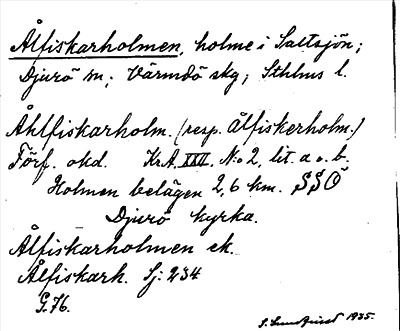 Ålfiskarholmen, holme i Saltsjön;
Djurö sn; Värmdö skg; Sthlms l.
Åhlfiskarholm. (resp. Ålfiskerholm.)
Förf. okd. KrA. XXII. N:o 2, lit. a o. b.
Holmen belägen 2,6 km. SSÖ
Djurö kyrka.
Ålfiskarholmen ek.
Ålfiskarh. Sj: 234
G.76.
S. Lundqvist 1935.